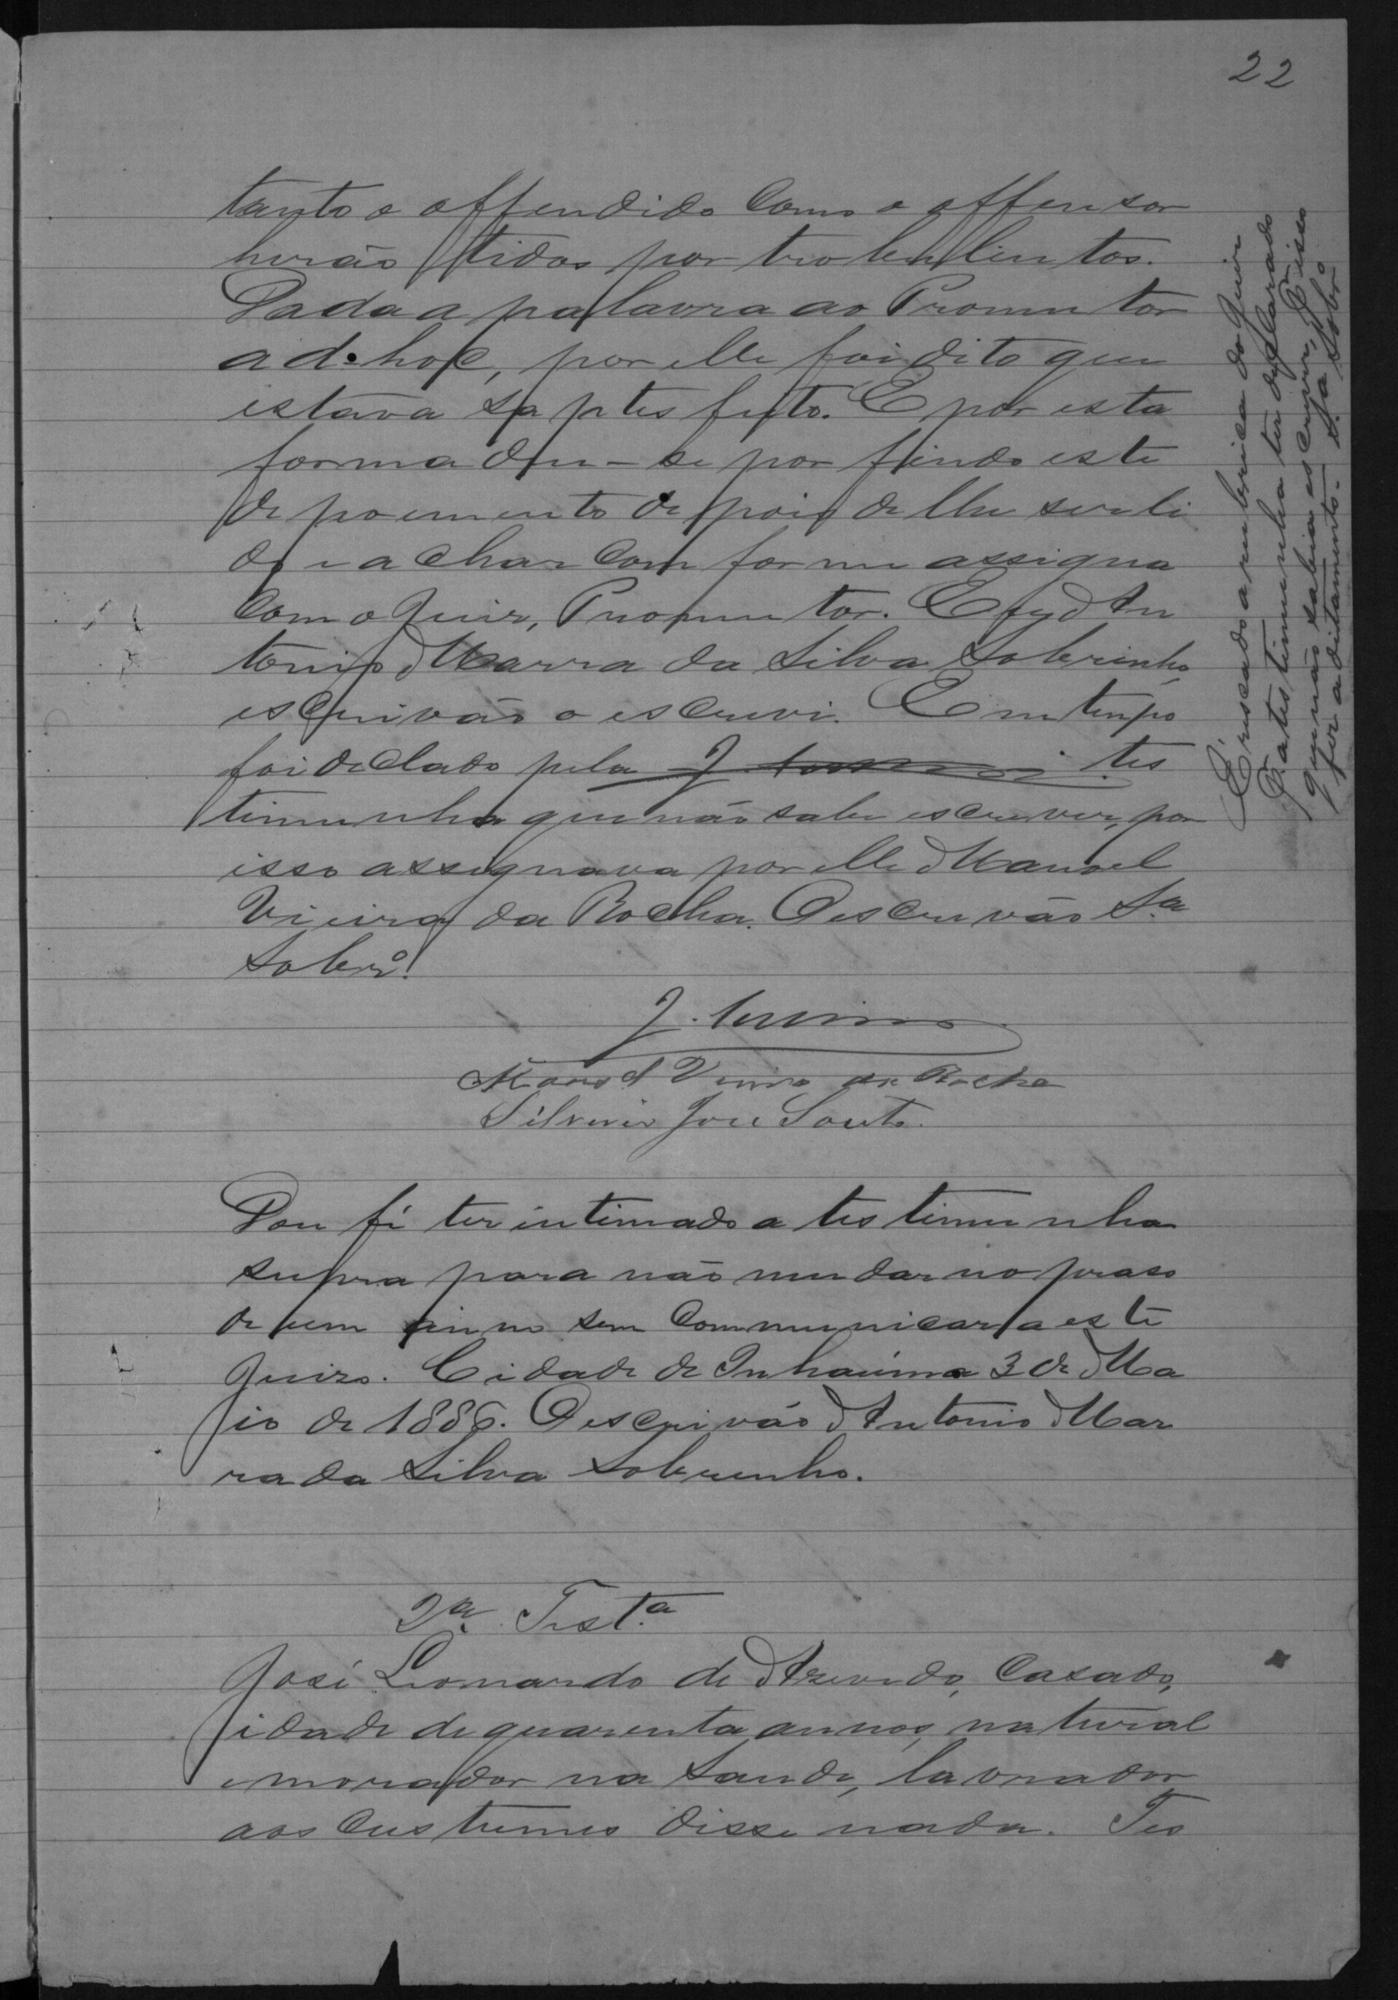 22
tanto o offendido como o offensor
herão tidos por trobulentos.
Dada a palavra ao Promutor
ad-hoc, por elle foi dito que
estava saptesfeito. E por esta
forma deu-se por findo este
depoemento depois de lhe ser li
do e achar comforme assigna
com o Juiz, Promutor. Eu An
tonio Marra da Silva Sobrinho,
escrivão o escrevi. Em tempo
foi declado pela J. tes
timunha que não sabe escrever, por
isso assignava por elle Manoel
Vieira da Rocha. O escrivão Sa
Sobro.
J.
Manoel Vieira da Rocha
Silverio José Souto.
Dou fé ter intimado a testimunha
supra para não mudar no praso
de um anno sem communicar a este
Juizo. Cidade de Inhaúma 3 de Ma
io de 1886. O escrivão Antonio Mar
ra da Silva Sobrinho.
2a Testa
José Leonardo de Azevedo, casado,
idade de quarenta annos, natural
e morador na Saude, lavrador
aos custumes disse nada. Tes
É riscado a rubrica do Juiz
Fa testimunha ter declarado
que não sabia escrever, Pr isso
fiz aditamento. Sa Sobro